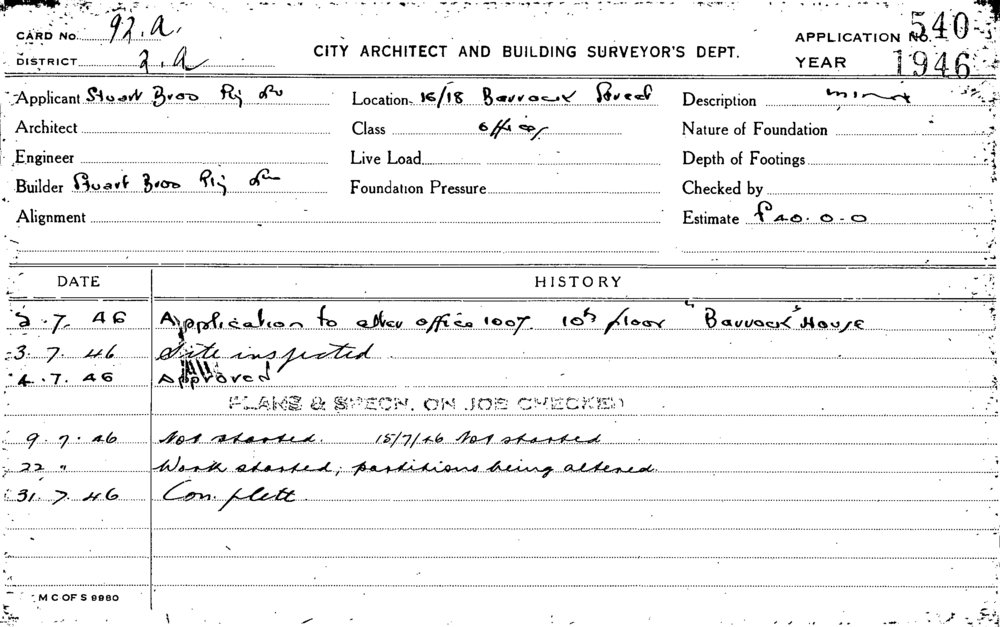 CARD No. 92.a.
DISTRICT 2.a
CITY ARCHITECT AND BUILDING SURVEYOR'S DEPT.
APPLICATION No. 540
YEAR 1946
Applicant Stuart Bros Pty
Location 16/18 Barrack Street
Description minor
Architect
Class offices
Nature of Foundation
Engineer
Live Load
Depth of Footings
Builder Stuart Bros Pty
Foundation Pressure
Checked by
Alignment
Estimate £40.0.0
DATE HISTORY
2.7.46 Application to alter office 1007. 10th floor "Barrack" House
3.7.46 Site inspected
4.7.46 Approved
PLANS & SPECN. ON JOB CHECKED
9.7.46 Not started. 15/7/46 Not started
22 " Work started, partitions being altered.
31.7.46 Complett
M C OF S 9980